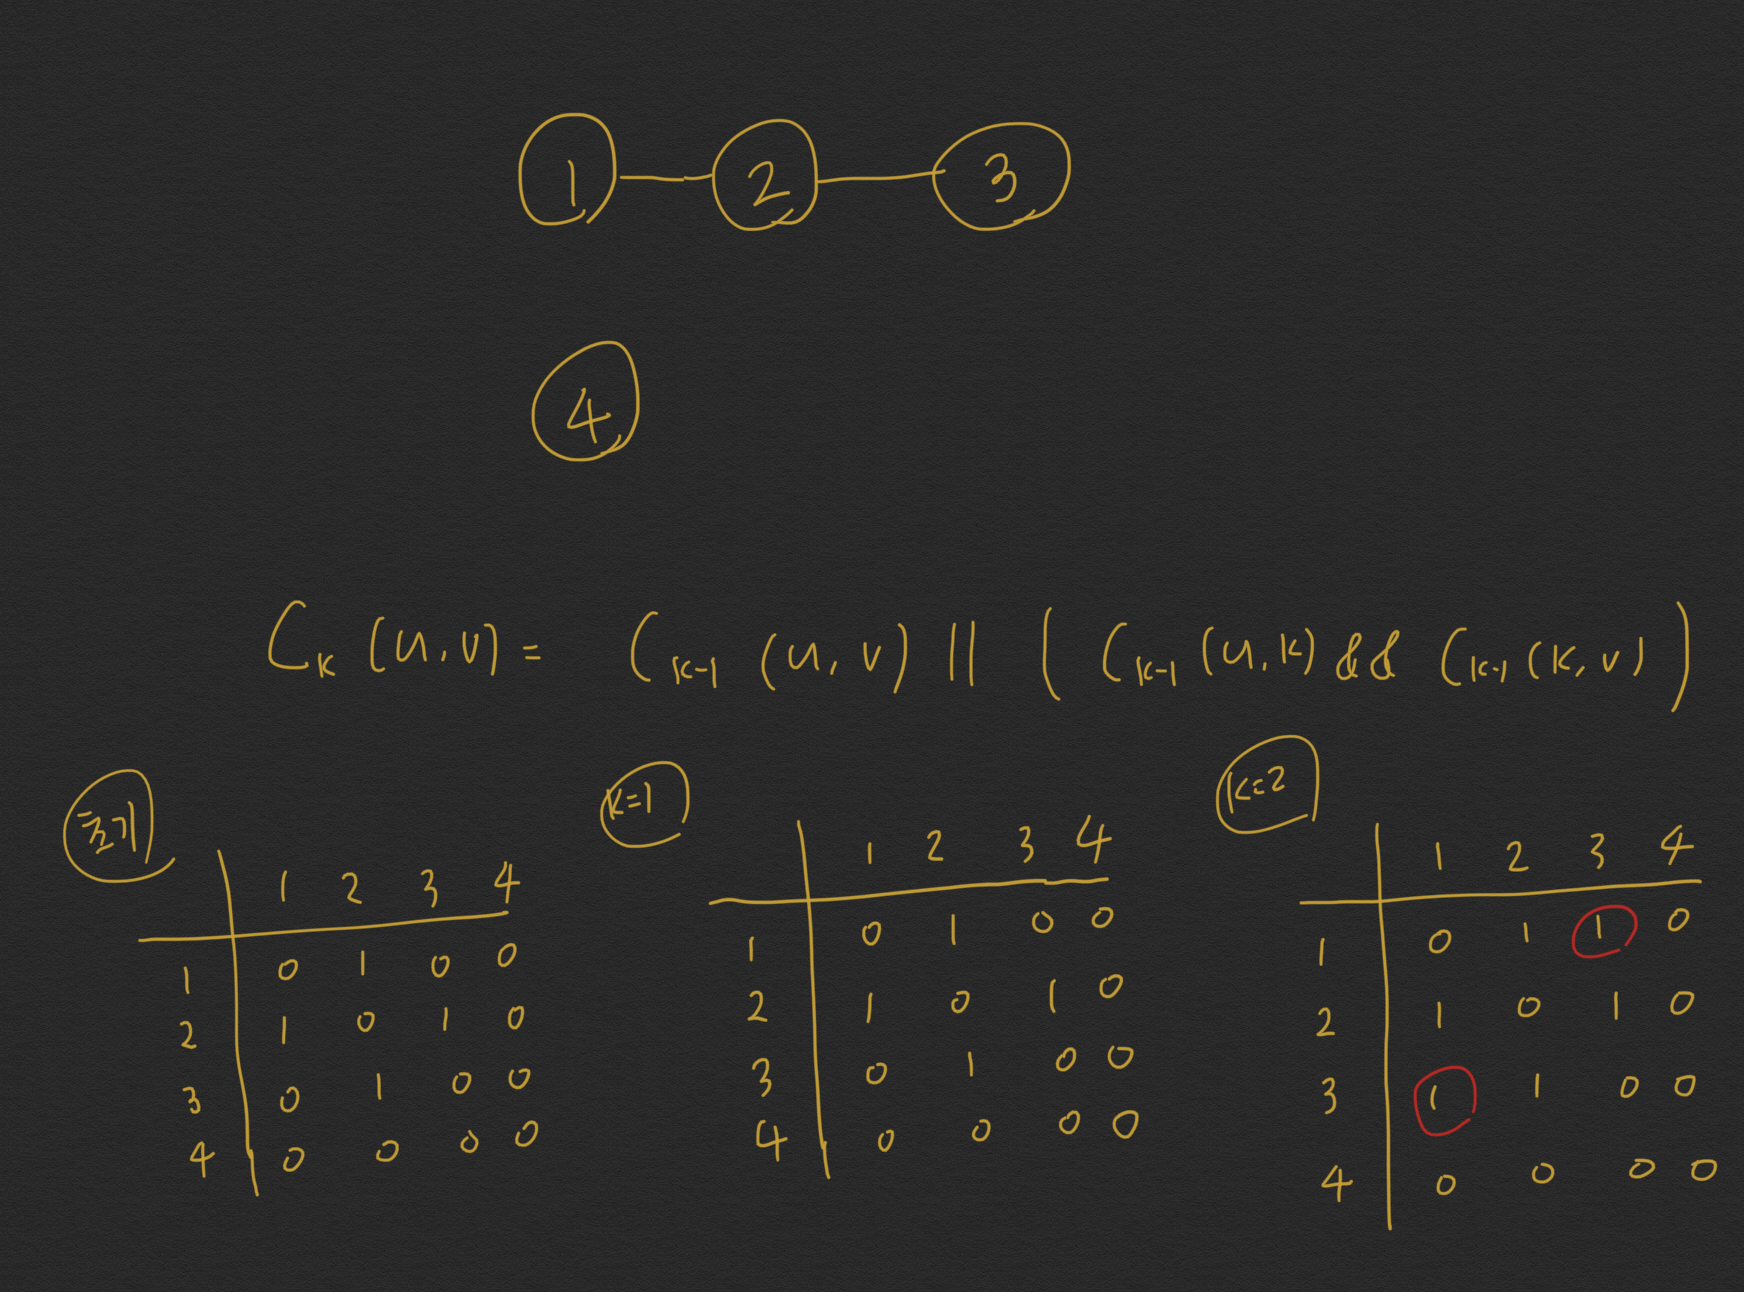 1 2 3
4
C_k (u, v) = C_k-1 (u, v) || ( C_k-1 (u, k) && C_k-1 (k, v) )
초기 k=1 k=2
1 2 3 4
1 0 1 0 0
2 1 0 1 0
3 0 1 0 0
4 0 0 0 0
1 2 3 4
1 0 1 0 0
2 1 0 1 0
3 0 1 0 0
4 0 0 0 0
1 2 3 4
1 0 1 1 0
2 1 0 1 0
3 1 1 0 0
4 0 0 0 0